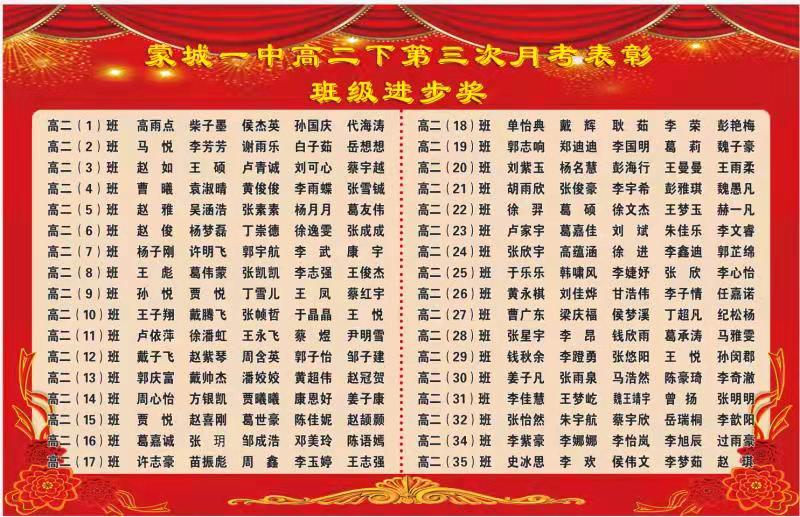 蒙城一中高二下第三次月考表彰
班级进步奖
高二（1）班 高雨点 柴子墨 侯杰英 孙国庆 代海涛
高二（2）班 马悦 李芳芳 谢雨乐 白子茹 岳想想
高二（3）班 赵如 王硕 卢青诚 刘可心 蔡宇越
高二（4）班 曹曦 袁淑晴 黄俊俊 李雨蝶 张雪铖
高二（5）班 赵雅 吴涵浩 张素素 杨月月 葛友伟
高二（6）班 赵俊 杨梦磊 丁崇德 徐逸雯 张成成
高二（7）班 杨子刚 许明飞 郭宇航 李武 康宇
高二（8）班 王彪 葛伟蒙 张凯凯 李志强 王俊杰
高二（9）班 孙悦 贾悦 丁雪儿 王凤 蔡红宇
高二（10）班 王子翔 戴腾飞 张帧哲 于晶晶 王悦
高二（11）班 卢依萍 徐潘虹 王永飞 蔡煜 尹明雪
高二（12）班 戴子飞 赵紫琴 周含英 郭子怡 邹子建
高二（13）班 郭庆富 戴帅杰 潘姣姣 黄超伟 赵冠贺
高二（14）班 周心怡 方银凯 贾曦曦 康恩好 姜子康
高二（15）班 贾悦 赵喜刚 葛世豪 陈佳妮 赵颉颢
高二（16）班 葛嘉诚 张玥 邹成浩 邓美玲 陈语嫣
高二（17）班 许志豪 苗振彪 周鑫 李玉婷 王志强
高二（18）班 单怡典 戴辉 耿茹 李荣 彭艳梅
高二（19）班 郭志响 郑迪迪 李国明 葛莉 魏子豪
高二（20）班 刘紫玉 杨名慧 彭海行 王曼曼 王雨柔
高二（21）班 胡雨欣 张俊豪 李宇希 彭雅琪 魏愚凡
高二（22）班 徐羿 葛硕 徐文杰 王梦玉 赫一凡
高二（23）班 卢家宇 葛嘉佳 刘斌 朱佳乐 李文睿
高二（24）班 张欣宇 高蕴涵 徐进 李鑫迪 郭芷绵
高二（25）班 于乐乐 韩啸风 李婕妤 张欣 李心怡
高二（26）班 黄永棋 刘佳烨 甘浩伟 李子情 任嘉诺
高二（27）班 曹广东 梁庆福 侯梦溪 丁超凡 纪松杨
高二（28）班 张星宇 李昂 钱欣雨 葛承涛 马雅雯
高二（29）班 钱秋余 李蹬勇 张悠阳 王悦 孙闵郡
高二（30）班 姜子凡 张雨泉 马浩然 陈豪琦 李奇澈
高二（31）班 李佳慧 王梦屹 魏王靖宇 曾扬 张明明
高二（32）班 张怡然 朱宇航 蔡宇欣 岳瑞桐 李歆阳
高二（34）班 李紫豪 李娜娜 李怡岚 李旭辰 过雨豪
高二（35）班 史冰思 李欢 侯伟文 李梦茹 赵琪